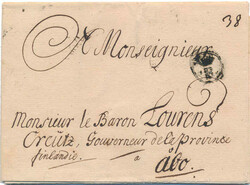 38
A Monseigneur
Monsieur le Baron Lourens
Creütz, Gouverneur de la Province
finlandie. Abo.